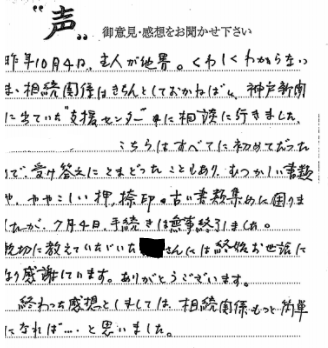 "声" 御意見・感想をお聞かせ下さい
昨年10月4日、主人が他界。くわしくわからない
ま、相続関係はきちんとしておかねばと、神戸新聞
に出ていた"支援センター"に相談に行きました。
こちらはすべてに初めてだった
ので、受け答えにとまどったこともあり、むつかしい書類
や、ややこしい押、捺印、古い書類集めに困りま
したが、7月4日、手続きは無事終了しました。
親切に教えていただいた さんには終始お世話に
なり感謝しています。ありがとうございます。
終わった感想としましては、相続関係もっと簡単
になれば…と思いました。